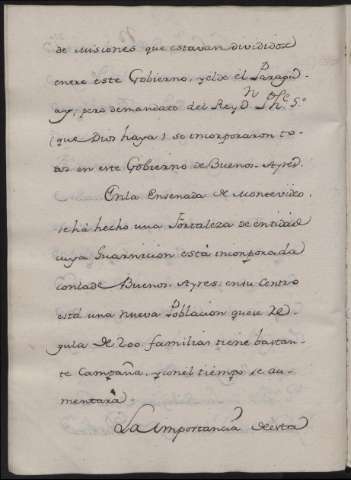 de Misiones que estavan divididos
entre este Gobierno, y el de el Parag-
ay, pero demandato del Rey Dn. Phe. 5.o
(que Dios haya) se incorporaron to-
das en este Gobierno de Buenos-Ayres.
En la Ensenada de Montevideo,
se há hecho una Fortaleza de entidad
cuya Guarnicion está incorporada
con la de Buenos-Ayres: en su Centro
está una nueva Poblacion que se Re-
gula de 200 familias tiene bastan-
te Campaña, y con el tiempo se au-
mentará.
La importancia de esta